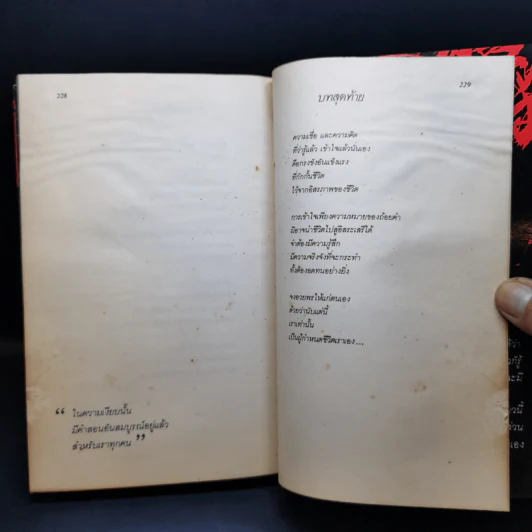 228
“ ในความเงียบนั้น
มีคำสอนอันสมบูรณ์อยู่แล้ว
สำหรับเราทุกคน ”
229
บทสุดท้าย
ความเชื่อ และความคิด
ที่ว่ารู้แล้ว เข้าใจแล้วนั่นเอง
คือกรงขังอันแข็งแรง
ที่กักกั้นชีวิต
ไว้จากอิสรภาพของชีวิต
การเข้าใจเพียงความหมายของถ้อยคำ
มิอาจนำชีวิตไปสู่อิสระเสรีได้
จำต้องมีความรู้สึก
มีความจริงจังที่จะกระทำ
ทั้งต้องอดทนอย่างยิ่ง
จงอวยพรให้แก่ตนเอง
ด้วยว่านับแต่นี้
เราเท่านั้น
เป็นผู้กำหนดชีวิตเราเอง...